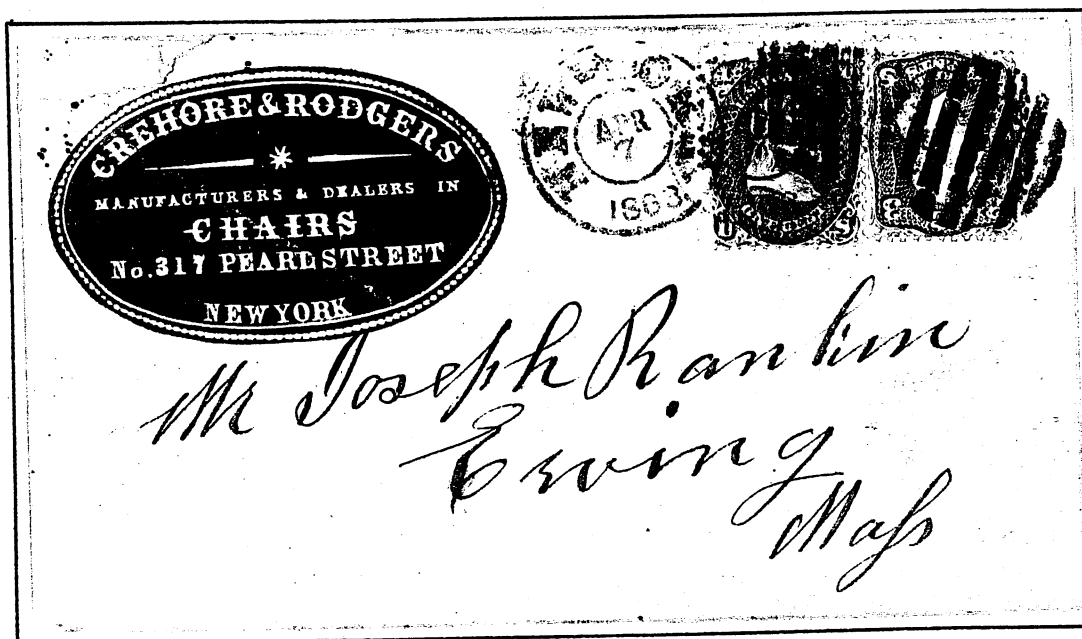 CREHORE & RODGERS
MANUFACTURERS & DEALERS IN
CHAIRS
No. 317 PEARL STREET
NEW YORK
APR
7
1863
U S
Mr Joseph Rankin
Erving
Mass